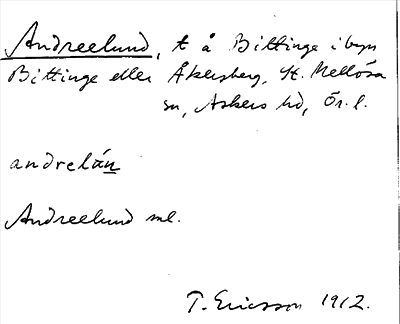 Andreelund, t å Bittinge i byn
Bittinge eller Åkersberg, St. Mellösa
sn, Askers hd, Ör. l.
andrelán
Andreelund ml.
T. Ericsson 1912.